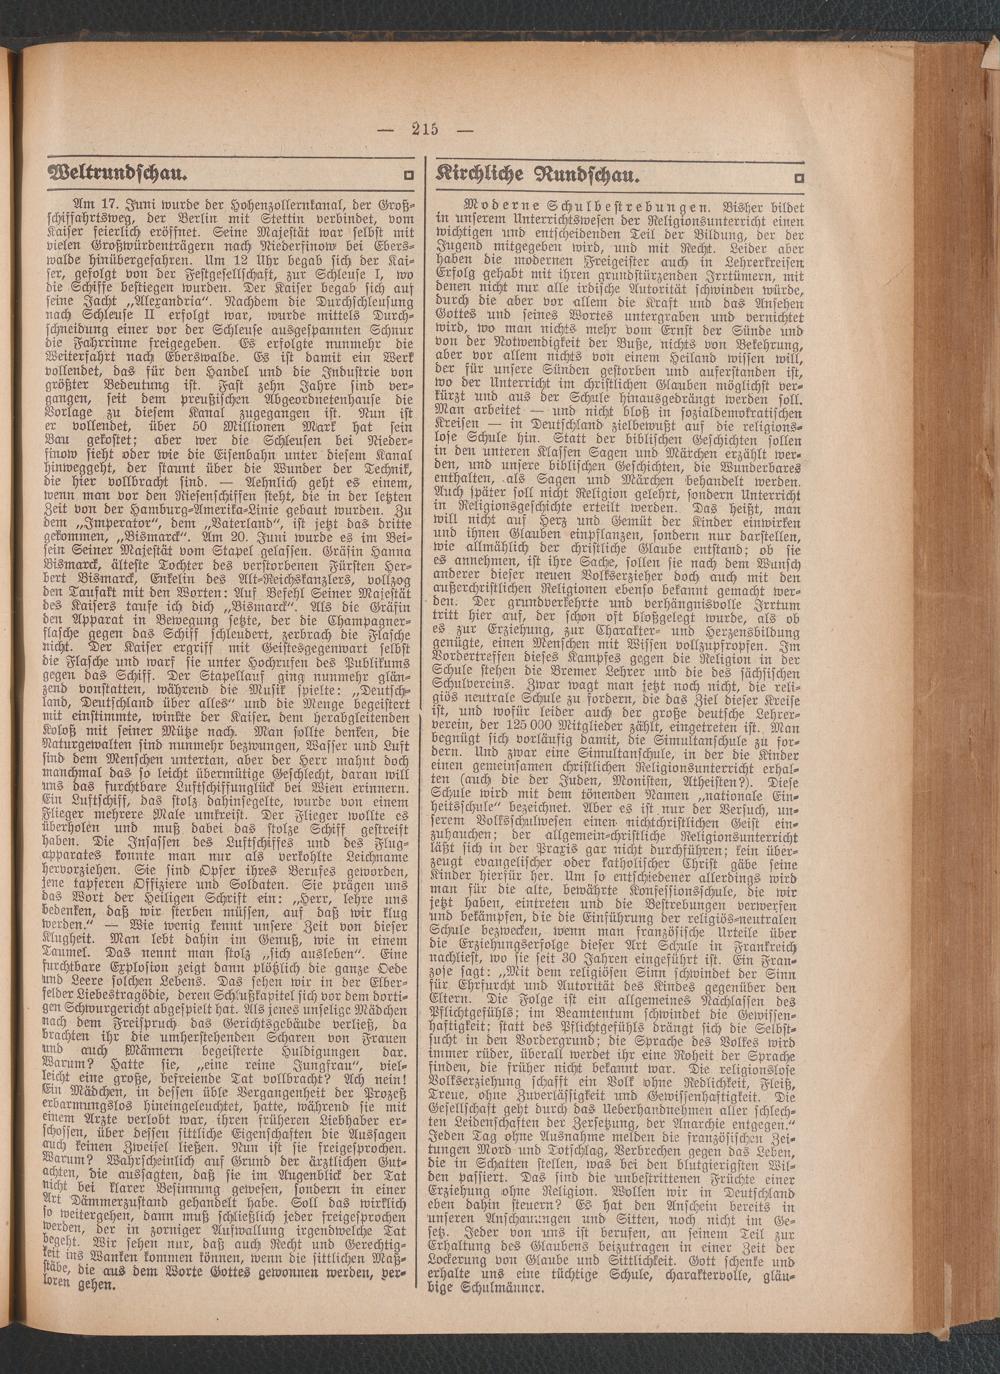 — 215 —
Weltrundschau.
Am 17. Juni wurde der Hohenzollernkanal, der Groß-
schiffahrtsweg, der Berlin mit Stettin verbindet, vom
Kaiser feierlich eröffnet. Seine Majestät war selbst mit
vielen Großwürdenträgern nach Niederfinow bei Ebers-
walde hinübergefahren. Um 12 Uhr begab sich der Kai-
ser, gefolgt von der Festgesellschaft, zur Schleuse I, wo
die Schiffe bestiegen wurden. Der Kaiser begab sich auf
seine Jacht „Alexandria“. Nachdem die Durchschleusung
nach Schleuse II erfolgt war, wurde mittels Durch-
schneidung einer vor der Schleuse ausgespannten Schnur
die Fahrrinne freigegeben. Es erfolgte nunmehr die
Weiterfahrt nach Eberswalde. Es ist damit ein Werk
vollendet, das für den Handel und die Industrie von
größter Bedeutung ist. Fast zehn Jahre sind ver-
gangen, seit dem preußischen Abgeordnetenhause die
Vorlage zu diesem Kanal zugegangen ist. Nun ist
er vollendet, über 50 Millionen Mark hat sein
Bau gekostet; aber wer die Schleusen bei Nieder-
finow sieht oder wie die Eisenbahn unter diesem Kanal
hinweggeht, der staunt über die Wunder der Technik,
die hier vollbracht sind. — Aehnlich geht es einem,
wenn man vor den Riesenschiffen steht, die in der letzten
Zeit von der Hamburg-Amerika-Linie gebaut wurden. Zu
dem „Imperator“, dem „Vaterland“, ist jetzt das dritte
gekommen, „Bismarck“. Am 20. Juni wurde es im Bei-
sein Seiner Majestät vom Stapel gelassen. Gräfin Hanna
Bismarck, älteste Tochter des verstorbenen Fürsten Her-
bert Bismarck, Enkelin des Alt-Reichskanzlers, vollzog
den Taufakt mit den Worten: Auf Befehl Seiner Majestät
des Kaisers taufe ich dich „Bismarck“. Als die Gräfin
den Apparat in Bewegung setzte, der die Champagner-
flasche gegen das Schiff schleudert, zerbrach die Flasche
nicht. Der Kaiser ergriff mit Geistesgegenwart selbst
die Flasche und warf sie unter Hochrufen des Publikums
gegen das Schiff. Der Stapellauf ging nunmehr glän-
zend vonstatten, während die Musik spielte: „Deutsch-
land, Deutschland über alles“ und die Menge begeistert
mit einstimmte, winkte der Kaiser, dem herabgleitenden
Koloß mit seiner Mütze nach. Man sollte denken, die
Naturgewalten sind nunmehr bezwungen, Wasser und Luft
sind dem Menschen untertan, aber der Herr mahnt doch
manchmal das so leicht übermütige Geschlecht, daran will
uns das furchtbare Luftschiffunglück bei Wien erinnern.
Ein Luftschiff, das stolz dahinsegelte, wurde von einem
Flieger mehrere Male umkreist. Der Flieger wollte es
überholen und muß dabei das stolze Schiff gestreift
haben. Die Insassen des Luftschiffes und des Flug-
apparates konnte man nur als verkohlte Leichname
hervorziehen. Sie sind Opfer ihres Berufes geworden,
jene tapferen Offiziere und Soldaten. Sie prägen uns
das Wort der Heiligen Schrift ein: „Herr, lehre uns
bedenken, daß wir sterben müssen, auf daß wir klug
werden.“ — Wie wenig kennt unsere Zeit von dieser
Klugheit. Man lebt dahin im Genuß, wie in einem
Taumel. Das nennt man stolz „sich ausleben“. Eine
furchtbare Explosion zeigt dann plötzlich die ganze Oede
und Leere solchen Lebens. Das sehen wir in der Elber-
felder Liebestragödie, deren Schlußkapitel sich vor dem dorti-
gen Schwurgericht abgespielt hat. Als jenes unselige Mädchen
nach dem Freispruch das Gerichtsgebäude verließ, da
brachten ihr die umherstehenden Scharen von Frauen
und auch Männern begeisterte Huldigungen dar.
Warum? Hatte sie, „eine reine Jungfrau“, viel-
leicht eine große, befreiende Tat vollbracht? Ach nein!
Ein Mädchen, in dessen üble Vergangenheit der Prozeß
erbarmungslos hineingeleuchtet, hatte, während sie mit
einem Arzte verlobt war, ihren früheren Liebhaber er-
schossen, über dessen sittliche Eigenschaften die Aussagen
auch keinen Zweifel ließen. Nun ist sie freigesprochen.
Warum? Wahrscheinlich auf Grund der ärztlichen Gut-
achten, die aussagten, daß sie im Augenblick der Tat
nicht bei klarer Besinnung gewesen, sondern in einer
Art Dämmerzustand gehandelt habe. Soll das wirklich
so weitergehen, dann muß schließlich jeder freigesprochen
werden, der in zorniger Aufwallung irgendwelche Tat
begeht. Wir sehen nur, daß auch Recht und Gerechtig-
keit ins Wanken kommen können, wenn die sittlichen Maß-
stäbe, die aus dem Worte Gottes gewonnen werden, ver-
loren gehen.
Kirchliche Rundschau.
Moderne Schulbestrebungen. Bisher bildet
in unserem Unterrichtswesen der Religionsunterricht einen
wichtigen und entscheidenden Teil der Bildung, der der
Jugend mitgegeben wird, und mit Recht. Leider aber
haben die modernen Freigeister auch in Lehrerkreisen
Erfolg gehabt mit ihren grundstürzenden Irrtümern, mit
denen nicht nur alle irdische Autorität schwinden würde,
durch die aber vor allem die Kraft und das Ansehen
Gottes und seines Wortes untergraben und vernichtet
wird, wo man nichts mehr vom Ernst der Sünde und
von der Notwendigkeit der Buße, nichts von Bekehrung,
aber vor allem nichts von einem Heiland wissen will,
der für unsere Sünden gestorben und auferstanden ist,
wo der Unterricht im christlichen Glauben möglichst ver-
kürzt und aus der Schule hinausgedrängt werden soll.
Man arbeitet — und nicht bloß in sozialdemokratischen
Kreisen — in Deutschland zielbewußt auf die religions-
lose Schule hin. Statt der biblischen Geschichten sollen
in den unteren Klassen Sagen und Märchen erzählt wer-
den, und unsere biblischen Geschichten, die Wunderbares
enthalten, als Sagen und Märchen behandelt werden.
Auch später soll nicht Religion gelehrt, sondern Unterricht
in Religionsgeschichte erteilt werden. Das heißt, man
will nicht auf Herz und Gemüt der Kinder einwirken
und ihnen Glauben einpflanzen, sondern nur darstellen,
wie allmählich der christliche Glaube entstand; ob sie
es annehmen, ist ihre Sache, sollen sie nach dem Wunsch
anderer dieser neuen Volkserzieher doch auch mit den
außerchristlichen Religionen ebenso bekannt gemacht wer-
den. Der grundverkehrte und verhängnisvolle Irrtum
tritt hier auf, der schon oft bloßgelegt wurde, als ob
es zur Erziehung, zur Charakter- und Herzensbildung
genügte, einen Menschen mit Wissen vollzupfropfen. Im
Vordertreffen dieses Kampfes gegen die Religion in der
Schule stehen die Bremer Lehrer und die des sächsischen
Schulvereins. Zwar wagt man jetzt noch nicht, die reli-
giös neutrale Schule zu fordern, die das Ziel dieser Kreise
ist, und wofür leider auch der große deutsche Lehrer-
verein, der 125 000 Mitglieder zählt, eingetreten ist. Man
begnügt sich vorläufig damit, die Simultanschule zu for-
dern. Und zwar eine Simultanschule, in der die Kinder
einen gemeinsamen christlichen Religionsunterricht erhal-
ten (auch die der Juden, Monisten, Atheisten?). Diese
Schule wird mit dem tönenden Namen „nationale Ein-
heitsschule“ bezeichnet. Aber es ist nur der Versuch, un-
serem Volksschulwesen einen nichtchristlichen Geist ein-
zuhauchen; der allgemein-christliche Religionsunterricht
läßt sich in der Praxis gar nicht durchführen; kein über-
zeugt evangelischer oder katholischer Christ gäbe seine
Kinder hierfür her. Um so entschiedener allerdings wird
man für die alte, bewährte Konfessionsschule, die wir
jetzt haben, eintreten und die Bestrebungen verwerfen
und bekämpfen, die die Einführung der religiös-neutralen
Schule bezwecken, wenn man französische Urteile über
die Erziehungserfolge dieser Art Schule in Frankreich
nachliest, wo sie seit 30 Jahren eingeführt ist. Ein Fran-
zose sagt: „Mit dem religiösen Sinn schwindet der Sinn
für Ehrfurcht und Autorität des Kindes gegenüber den
Eltern. Die Folge ist ein allgemeines Nachlassen des
Pflichtgefühls; im Beamtentum schwindet die Gewissen-
haftigkeit; statt des Pflichtgefühls drängt sich die Selbst-
sucht in den Vordergrund; die Sprache des Volkes wird
immer rüder, überall werdet ihr eine Roheit der Sprache
finden, die früher nicht bekannt war. Die religionslose
Volkserziehung schafft ein Volk ohne Redlichkeit, Fleiß,
Treue, ohne Zuverlässigkeit und Gewissenhaftigkeit. Die
Gesellschaft geht durch das Ueberhandnehmen aller schlech-
ten Leidenschaften der Zersetzung, der Anarchie entgegen.“
Jeden Tag ohne Ausnahme melden die französischen Zei-
tungen Mord und Totschlag, Verbrechen gegen das Leben,
die in Schatten stellen, was bei den blutgierigsten Wil-
den passiert. Das sind die unbestrittenen Früchte einer
Erziehung ohne Religion. Wollen wir in Deutschland
eben dahin steuern? Es hat den Anschein bereits in
unseren Anschauungen und Sitten, noch nicht im Ge-
setz. Jeder von uns ist berufen, an seinem Teil zur
Erhaltung des Glaubens beizutragen in einer Zeit der
Lockerung von Glaube und Sittlichkeit. Gott schenke und
erhalte uns eine tüchtige Schule, charaktervolle, gläu-
bige Schulmänner.